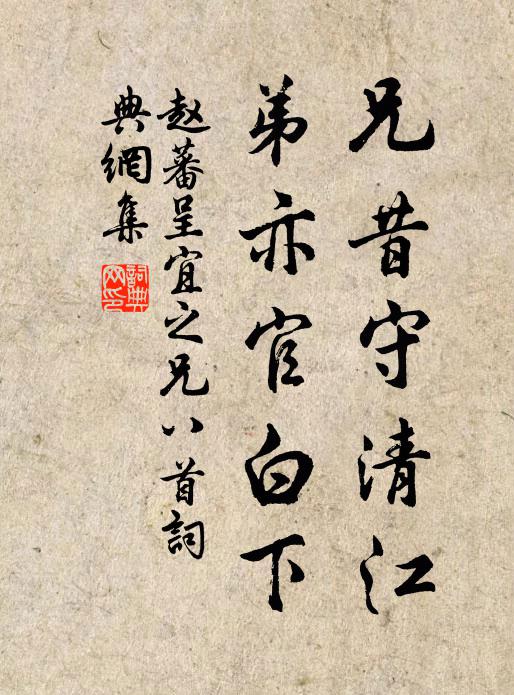 兄昔守清江
弟亦官白下
赵蕃呈宜之兄八首詞
典網集
詞典網印